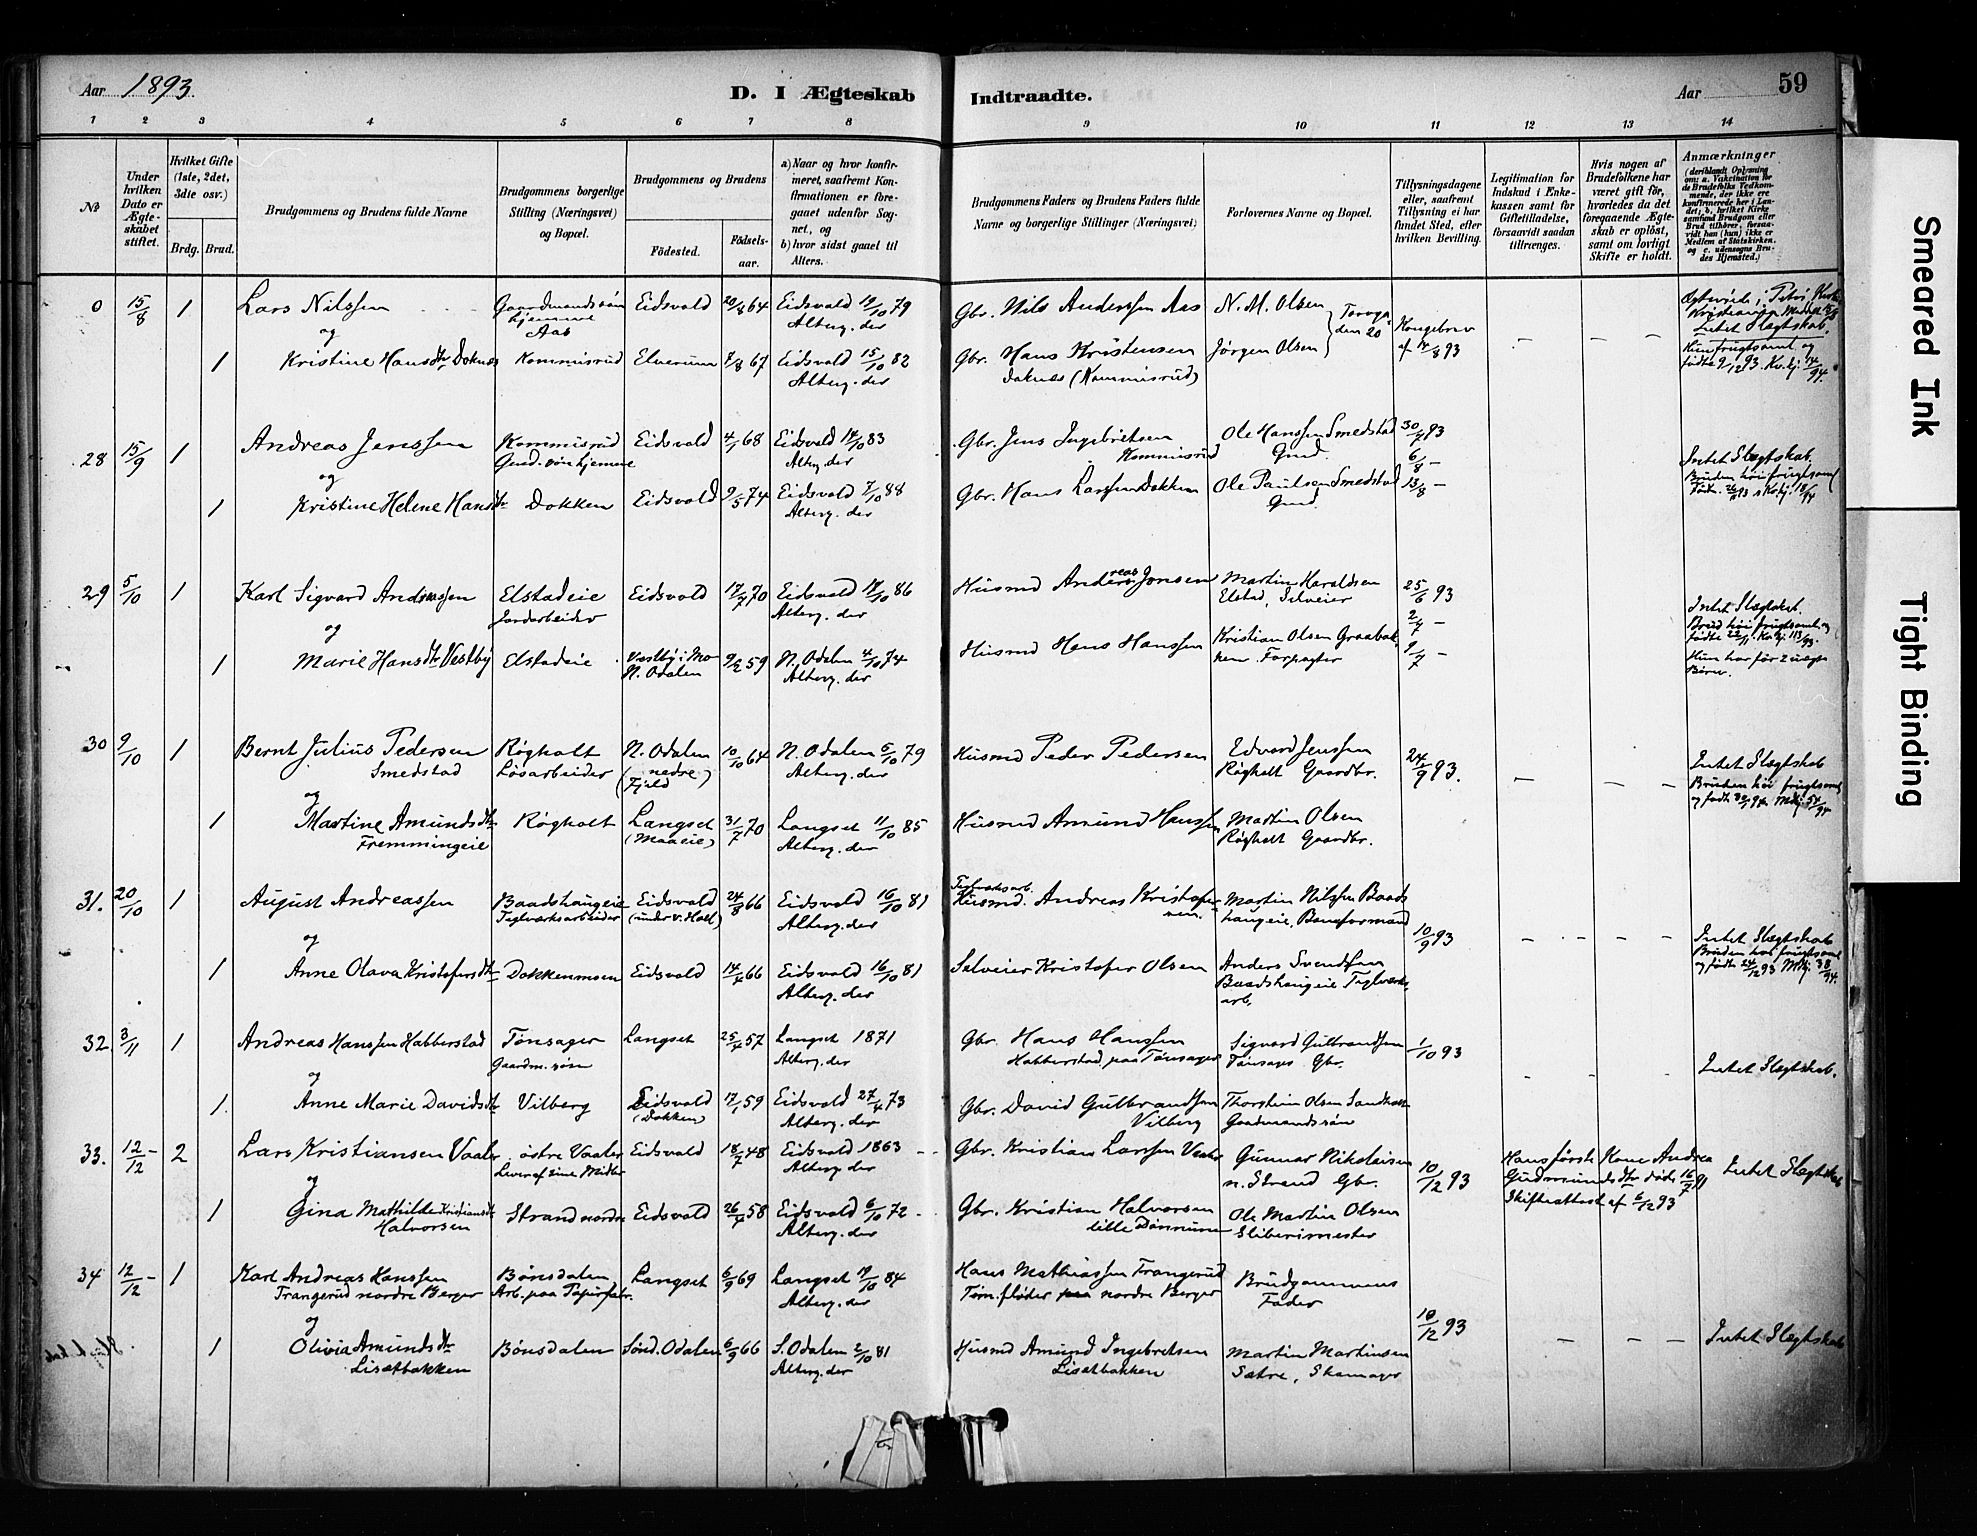 Aar 1893.
D. I Ægteskab
Indtraadte.
Aar
59
1 2 3 4 5 6 7 8
9 10 11 12 13 14
№
Under hvilken Dato er Ægteskabet stiftet.
Hvilket Gifte (1ste, 2det, 3die osv.)
Brdg. Brud.
Brudgommens og Brudens fulde Navne
Brudgommens borgerlige Stilling (Næringsvei) og Bopæl.
Brudgommens og Brudens
Födested.
Födsels-aar.
a) Naar og hvor konfirmeret, saafremt Konfirmationen er foregaaet udenfor Sognet, og
b) hvor sidst gaaet til Alters.
Brudgommens Faders og Brudens Faders fulde Navne og borgerlige Stillinger (Næringsvei)
Forlovernes Navne og Bopæl.
Tillysningsdagene eller, saafremt Tillysning ei har fundet Sted, efter hvilken Bevilling.
Legitimation for Indskud i Enkekassen samt for Giftetilladelse, forsaavidt saadan tiltrænges.
Hvis nogen af Brudefolkene har været gift för, hvorledes da det foregaaende Ægteskab er oplöst, samt om lovligt Skifte er holdt.
Anmærkninger
0 15/8 1 Lars Nilssen Gaardmandssön hjemme Aas Eidsvold 20/8 64 Eidsvold 19/10 79 Alterg. der Gbr. Nils Anderssen Aas N. M. Olsen
og
1 Kristine Hansdtr Doknes Kommisrud Elverum 7/8 67 Eidsvold 15/10 82 Alterg. der Gbr. Hans Kristensen Doknes (Kommisrud) Jörgen Olsen Kongebrev af 14/8 93 Intet Slegtskab
28 15/9 1 Andreas Jenssen Kommisrud Gmd. sön hjemme Eidsvold 4/1 68 Eidsvold 14/10 83 Alterg. der Gbr. Jens Ingebretsen Kommisrud Ole Hanssen Smedstad Gmd. 30/7 93
og 6/8 –
1 Kristine Helene Hansdtr Dokken Eidsvold 9/5 74 Eidsvold 7/10 88 Alterg. der Gbr. Hans Larssen Dokken Ole Paulsen Smedstad Gmd. 13/8 – Intet Slegtskab.
29 5/10 1 Karl Sigvard Andreassen Elstadeie Jordarbeider Eidsvold 17/7 70 Eidsvold 17/10 86 Alterg. der Husmd Andreas Jonsen Martin Haraldsen Elstad, Selveier 25/6 93
og 2/7 –
1 Marie Hansdtr Vestby Elstadeie Vestby i Mo N. Odalen 9/2 59 N. Odalen 4/10 74 Alterg. der Husmd Hans Hanssen Kristian Olsen Graabek Forpagter 9/7 – Intet Slegtskab.
30 9/10 1 Bernt Julius Pedersen Smedstad Røgholt Løsarbeider N. Odalen (nedre Fjeld) 10/10 64 N. Odalen 5/10 79 Alterg. der Husmd Peder Pedersen Edvard Jenssen Røgholt Gaardbr. 24/9 93.
og
1 Martine Amundsdtr Fremmingeie Røgholt Langset (Maaeie) 31/7 70 Langset 11/10 85 Alterg. der Husmd Amund Hanssen Martin Olsen Røgholt Gaardbr. Intet Slegtskab
31. 20/10 1 August Andreassen Baadshaugeie Teglværksarbeider Eidsvold (under v. Holl) 24/8 66 Eidsvold 16/10 81 Alterg. der Teglværksarb. Husmd. Andreas Kristofersen Martin Nilssen Baadshaugeie, Baneformand
og 10/9 93
1 Anne Olava Kristofersdtr Dokkenmoen Eidsvold 14/4 66 Eidsvold 16/10 81 Alterg. der Selveier Kristofer Olsen Anders Svendsen Baadshaugeie Teglværksarb. Intet Slegtskab
32 3/11 1 Andreas Hanssen Habberstad Tønsager Gaardm. søn Langset 25/4 57 Langset 1871 Alterg. der Gbr. Hans Hanssen Habberstad paa Tønsager Sigvard Gulbrandsen Tønsager Gbr. 1/10 93
og
1. Anne Marie Davidsdtr Vilberg Eidsvold (Dokken) 17/1 59 Eidsvold 27/4 73 Alterg. der Gbr. David Gulbrandsen Vilberg Thorstein Olsen Gaardmandssön Intet Slegtskab.
33. 12/12 – 2 Lars Kristiansen Vaaler østre Vaaler Lever af sine Midler Eidsvold 18/7 48 Eidsvold 1863 Alterg. der Gbr. Kristian Larssen Vaaler Gunnar Nikolaisen n. Strand Gbr. 10/12 93 Hans første Kone Andrea Gudmundsdtr døde 16/7 91 Skifteattest af 6/12 93 Intet Slegtskab
og
1 Gina Mathilde Kristiansdtr Halvorsen Strand nordre Eidsvold 26/4 58 Eidsvold 6/10 72 Alterg. der Gbr. Kristian Halvorsen lille Dønnum Ole Martin Olsen Sliberimester
34 12/12 – 1 Karl Andreas Hanssen Trangerud nordre Berger Bønsdalen Arb. paa Papirfabr. Langset 6/9 69 Langset 19/10 84 Alterg. der Hans Mathiassen Trangerud Tøm. fløder nordre Berger Brudgommens Fader
og 10/12 93
1 Olivia Amundsdtr Lisetbakken Bønsdalen Sönd. Odalen 6/9 66 S. Odalen 2/10 81 Alterg. der Husmd Amund Ingebretsen Lisetbakken Martin Martinsen Sætre, Skomager Intet Slegtskab
Smeared Ink
Tight Binding